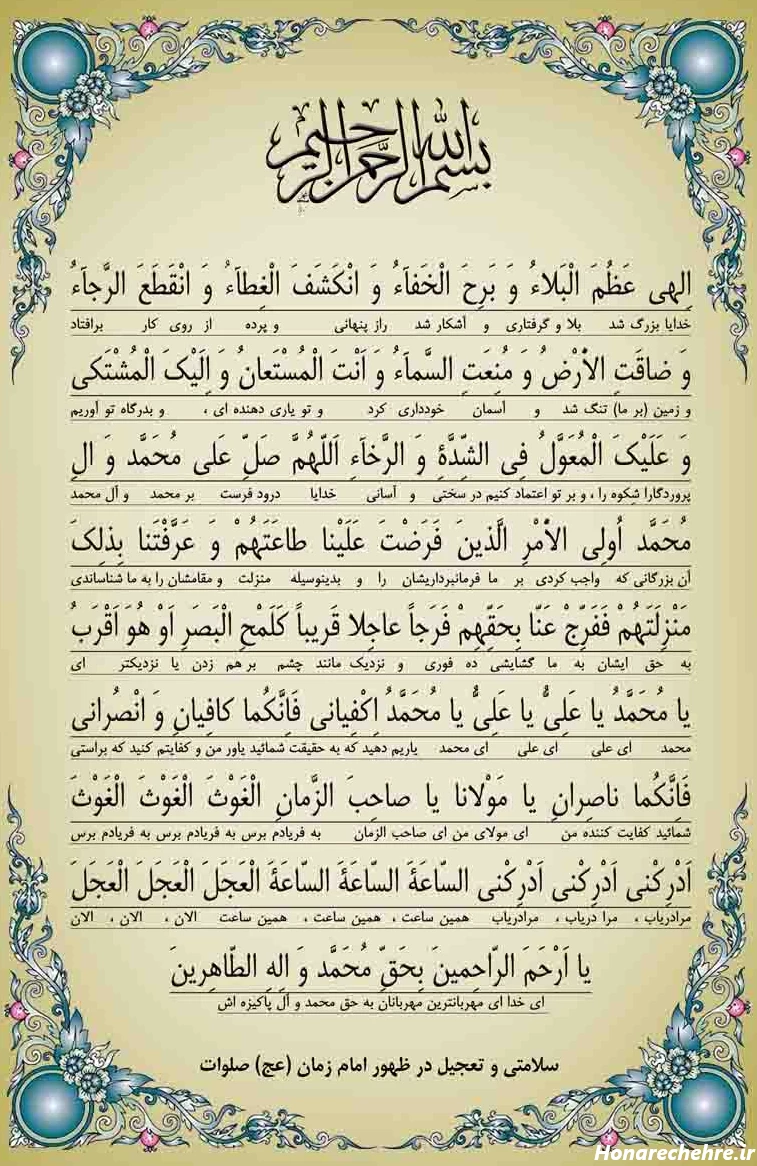 بسم الله الرحمن الرحیم
اِلهی عَظُمَ الْبَلاءُ وَ بَرِحَ الْخَفآءُ وَ انْکَشَفَ الْغِطآءُ وَ انْقَطَعَ الرَّجآءُ
خدایا بزرگ شد بلا و گرفتاری و آشکار شد راز پنهانی و پرده از روی کار برافتاد
وَ ضاقَتِ الاَْرْضُ وَ مُنِعَتِ السَّمآءُ وَ اَنْتَ الْمُسْتَعانُ وَ اِلَیْکَ الْمُشْتَکی
و زمین (بر ما) تنگ شد و آسمان خودداری کرد و تو یاری دهنده ای ، و بدرگاه تو آوریم
وَ عَلَیْکَ الْمُعَوَّلُ فِی الشِّدَّةِ وَ الرَّخآءِ اَللّهُمَّ صَلِّ عَلی مُحَمَّد وَ الِ
پروردگارا شکوه را ، و بر تو اعتماد کنیم در سختی و آسانی خدایا درود فرست بر محمد و آل محمد
مُحَمَّد اُولِی الاَْمْرِ الَّذینَ فَرَضْتَ عَلَیْنا طاعَتَهُمْ وَ عَرَّفْتَنا بِذلِکَ
آن بزرگانی که واجب کردی بر ما فرمانبرداریشان را و بدینوسیله منزلت و مقامشان را به ما شناساندی
مَنْزِلَتَهُمْ فَفَرِّجْ عَنّا بِحَقِّهِمْ فَرَجاً عاجِلا قَریباً کَلَمْحِ الْبَصَرِ اَوْ هُوَ اَقْرَبُ
به حق ایشان به ما گشایشی ده فوری و نزدیک مانند چشم بر هم زدن یا نزدیکتر ای
یا مُحَمَّدُ یا عَلِیُّ یا عَلِیُّ یا مُحَمَّدُ اِکْفِیانی فَاِنَّکُما کافِیانِ وَ انْصُرانی
محمد ای علی ای علی ای محمد یاریم دهید که به حقیقت شمائید یاور من و کفایتم کنید که براستی
فَاِنَّکُما ناصِرانِ یا مَوْلانا یا صاحِبَ الزَّمانِ الْغَوْثَ الْغَوْثَ الْغَوْثَ
شمائید کفایت کننده من ای مولای من ای صاحب الزمان به فریادم برس به فریادم برس به فریادم برس
اَدْرِکْنی اَدْرِکْنی اَدْرِکْنی السّاعَةَ السّاعَةَ السّاعَةَ الْعَجَلَ الْعَجَلَ الْعَجَلَ
مرادریاب ، مرا دریاب ، مرادریاب همین ساعت ، همین ساعت ، همین ساعت الان ، الان ، الان
یا اَرْحَمَ الرّاحِمینَ بِحَقِّ مُحَمَّد وَ الِهِ الطّاهِرینَ
ای خدا ای مهربانترین مهربانان به حق محمد و آل پاکیزه اش
سلامتی و تعجیل در ظهور امام زمان (عج) صلوات
Honarechehre.ir